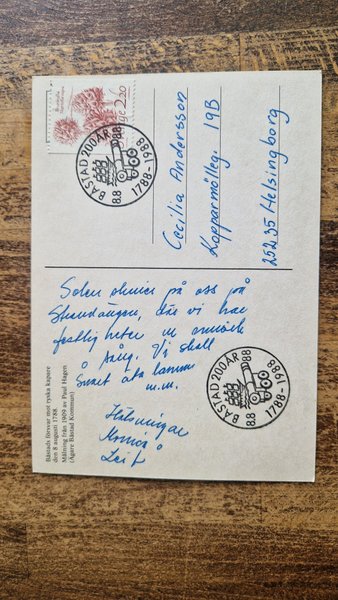 Båstads försvar mot ryska kapare
den 8 augusti 1788.
Målning från 1909 av Paul Hagen
(Ägare Båstad Kommun)
Solen skiner på oss på
Strandängen, där vi har
festligheter m
å sång. Vi skall
Snart äta lamm
m.m.
Hälsningar
Mormor å
Leif
Cecilia Andersson
Kopparmölleg. 19B
252 35 Helsingborg
Sverige 2.20
BÅSTAD 200 ÅR
8.8
88
1788-1988
BÅSTAD 200 ÅR
8.8
88
1788-1988